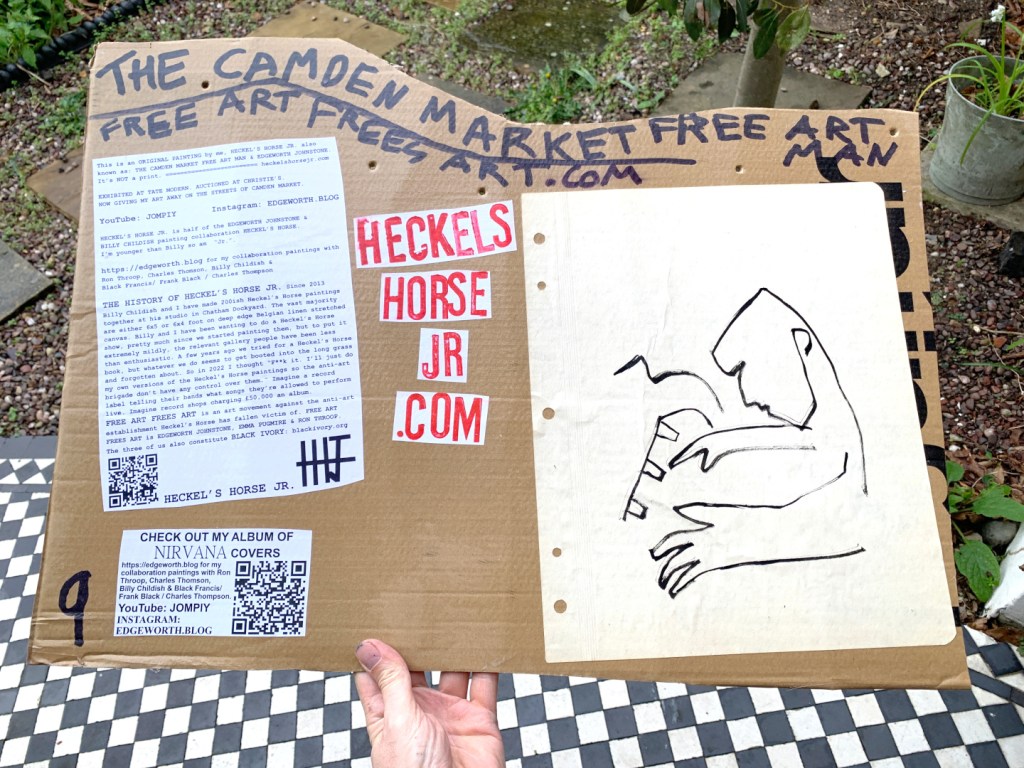 THE CAMDEN MARKET FREE ART MAN
FREE ART FREES ART.COM
This is an ORIGINAL PAINTING by me. HECKEL'S HORSE JR. also
known as: THE CAMDEN MARKET FREE ART MAN & EDGEWORTH JOHNSTONE
It's NOT a print. heckelshorsejr.com
EXHIBITED AT TATE MODERN. AUCTIONED AT CHRISTIE'S.
NOW GIVING MY ART AWAY ON THE STREETS OF CAMDEN MARKET.
YouTube: JOMPIY Instagram: EDGEWORTH.BLOG
HECKEL'S HORSE JR. is half of the EDGEWORTH JOHNSTONE &
BILLY CHILDISH painting collaboration HECKEL'S HORSE.
I'm younger than Billy so am "Jr."
https://edgeworth.blog for my collaboration paintings with
Ron Throop, Charles Thomson, Billy Childish &
Black Francis/ Frank Black / Charles Thompson
THE HISTORY OF HECKEL'S HORSE JR. Since 2013
Billy Childish and I have made 200ish Heckel's Horse paintings
together at his studio in Chatham Dockyard. The vast majority
are either 6x5 or 6x4 foot on deep edge Belgian linen stretched
canvas. Billy and I have been wanting to do a Heckel's Horse
show, pretty much since we started painting them, but to put it
extremely mildly, the relevant gallery people have been less
than enthusiastic. A few years ago we tried for a Heckel's Horse
book, but whatever we do seems to get booted into the long grass
and forgotten about. So in 2022 I thought "F**k it. I'll just do
my own versions of the Heckel's Horse paintings so the anti-art
brigade don't have any control over them." Imagine a record
label telling their bands what songs they're allowed to perform
live. Imagine record shops charging £50,000 an album.
FREE ART FREES ART is an art movement against the anti-art
establishment Heckel's Horse has fallen victim of. FREE ART
FREES ART is EDGEWORTH JOHNSTONE, EMMA PUGMIRE & RON THROOP
The three of us also constitute BLACK IVORY: blackivory.org
HECKEL'S HORSE JR.
HECKELS
HORSE
JR
.COM
CHECK OUT MY ALBUM OF
NIRVANA COVERS
https://edgeworth.blog for my
collaboration paintings with Ron
Throop, Charles Thomson,
Billy Childish & Black Francis/
Frank Black / Charles Thompson.
YouTube: JOMPIY
INSTAGRAM:
EDGEWORTH.BLOG
9